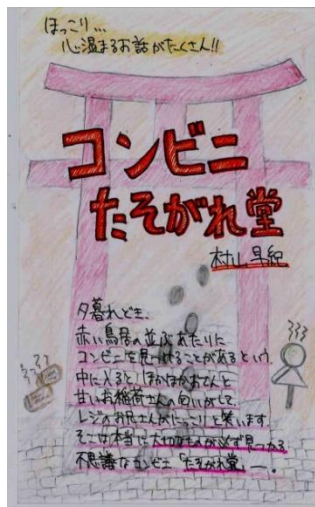 ほっこり…
心温まるお話がたくさん!!
コンビニ
たそがれ堂
村山早紀
夕暮れどき、
赤い鳥居の並ぶあたりに
コンビニを見つけることがあるという。
中に入ると、ほかほかおでんと
甘いお稲荷さんの匂いがして、
レジのお兄さんがにっこりと笑います
そこは本当に大切なものが必ず見つかる
不思議なコンビニ「たそがれ堂」―。